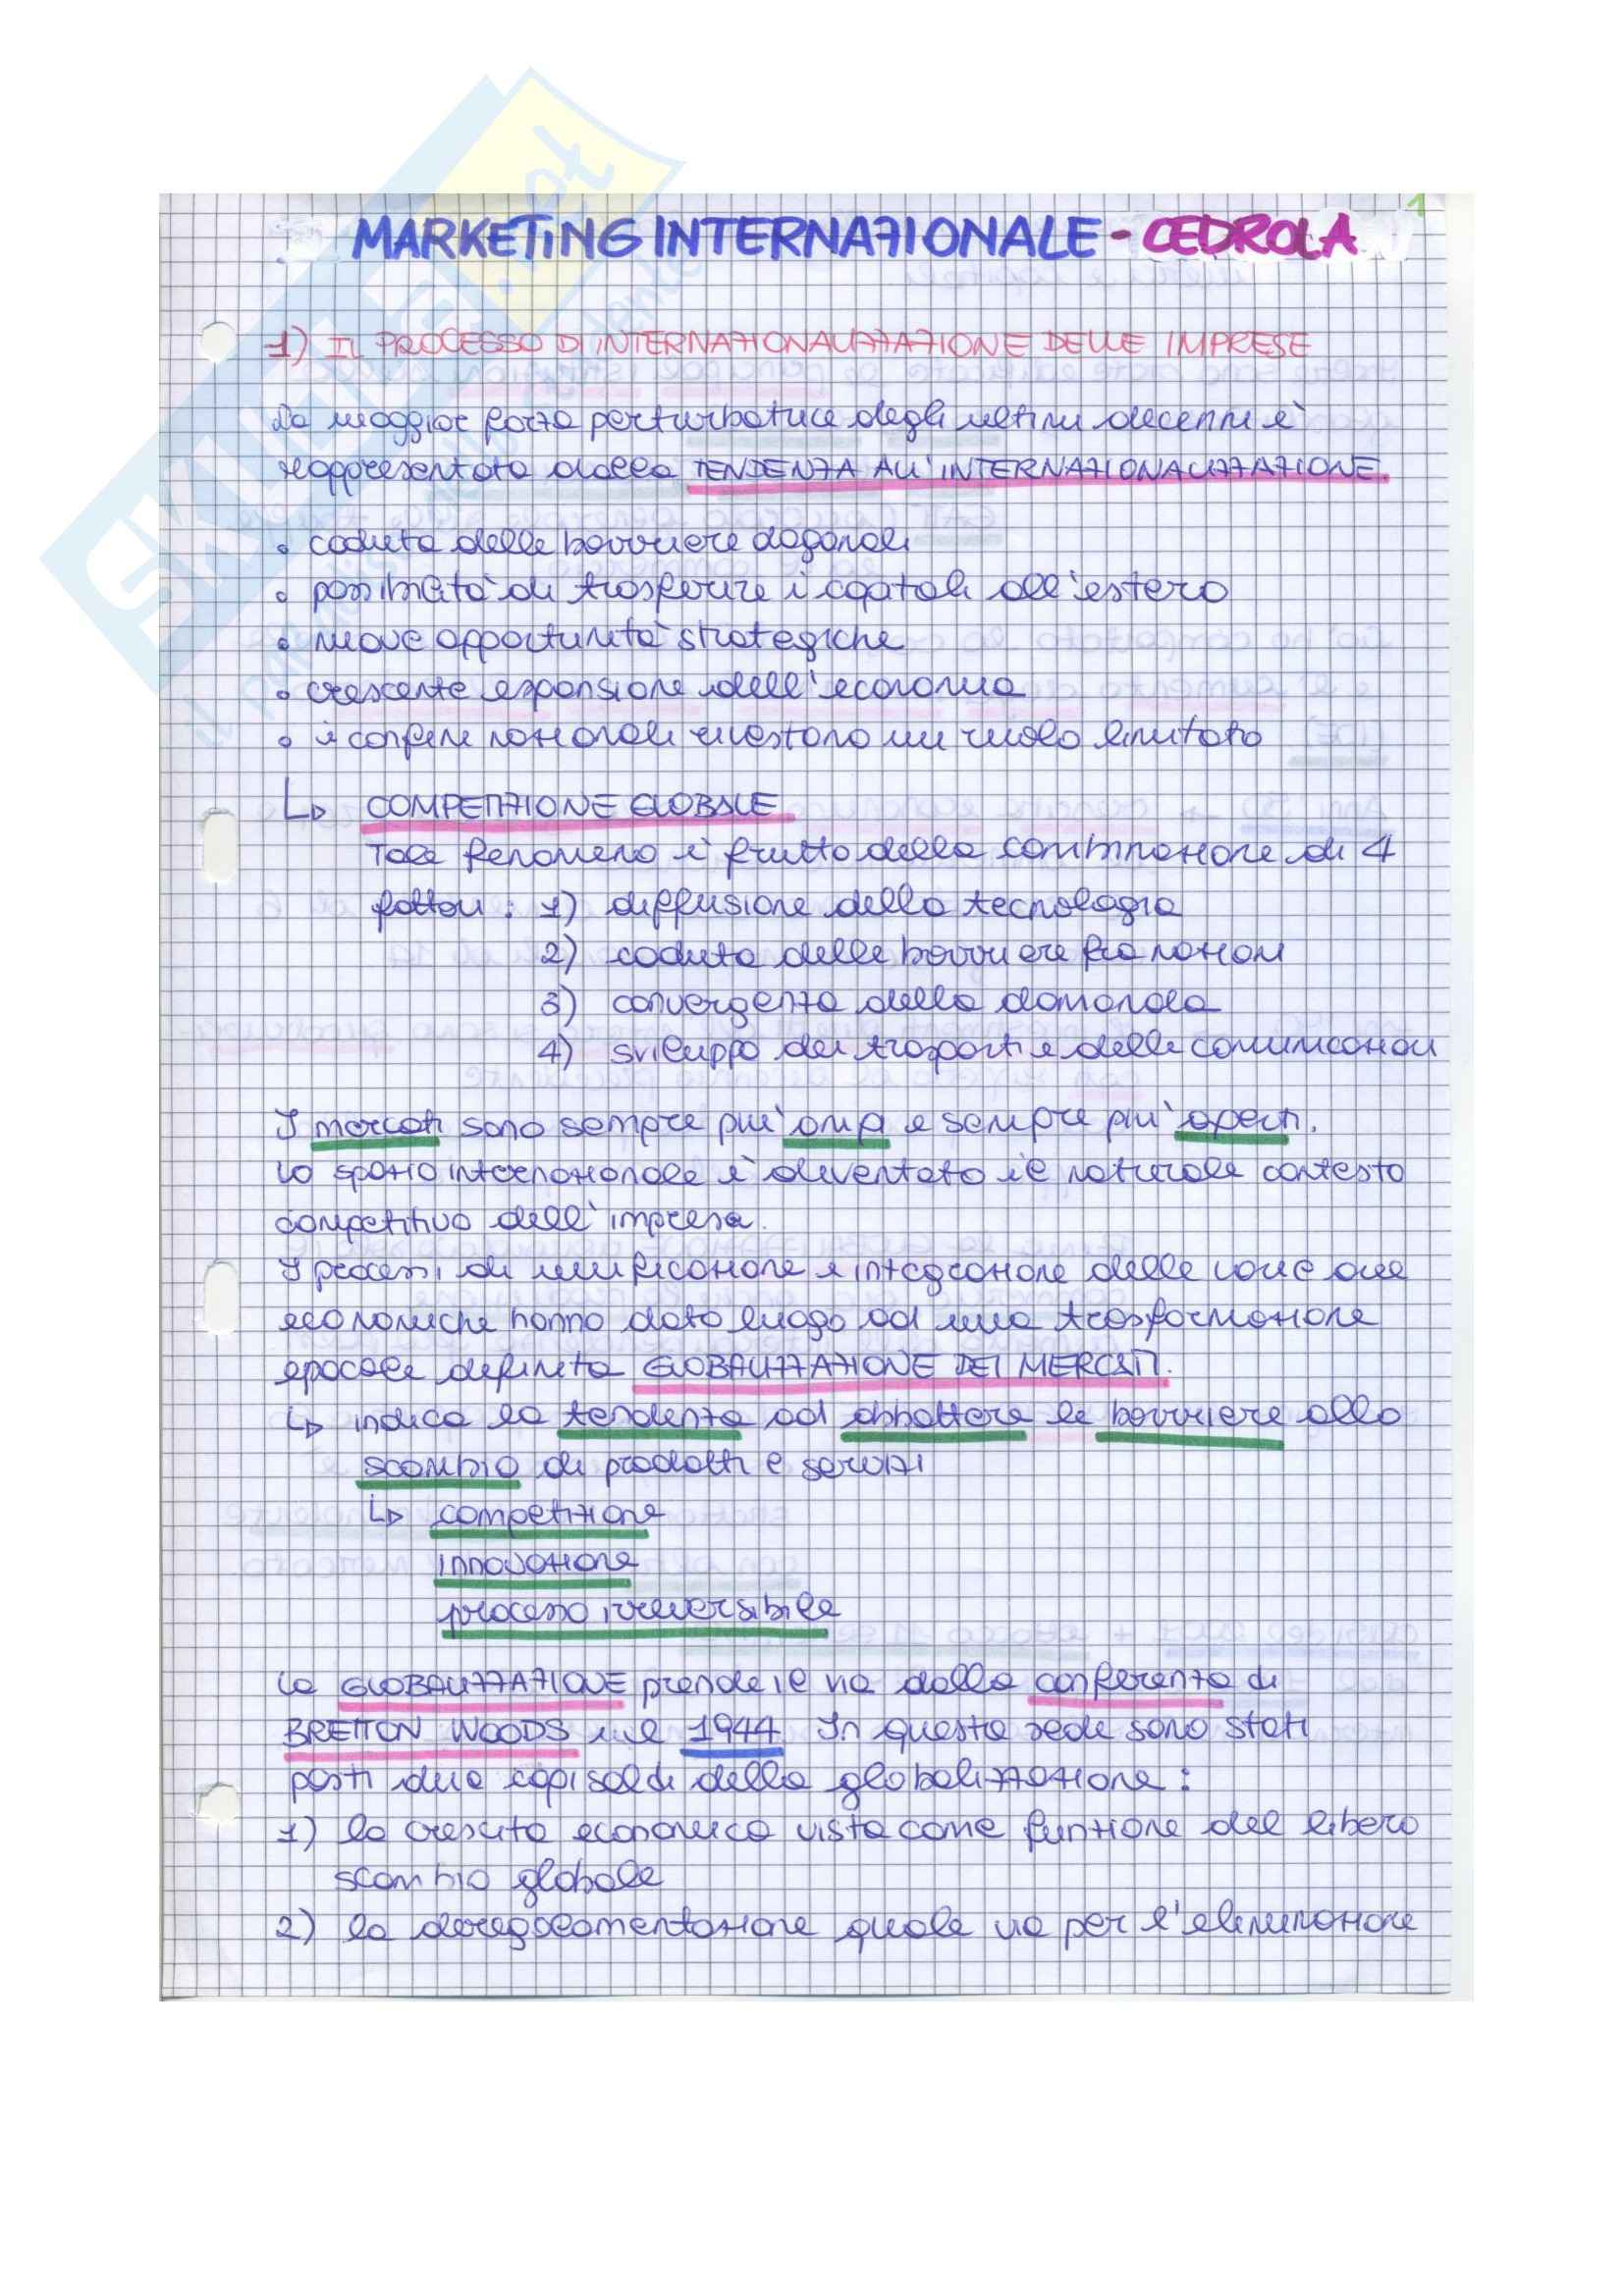 1
MARKETING INTERNAZIONALE - CEDROLA
1) IL PROCESSO DI INTERNAZIONALIZZAZIONE DELLE IMPRESE
La maggior forza perturbatrice degli ultimi decenni è
rappresentata dalla TENDENZA ALL'INTERNAZIONALIZZAZIONE.
• caduta delle barriere doganali
• possibilità di trasferire i capitali all'estero
• nuove opportunità strategiche
• crescente espansione dell'economia
• i confini nazionali rivestono un ruolo limitato
↳ COMPETIZIONE GLOBALE
Tale fenomeno è frutto della combinazione di 4
fattori: 1) diffusione della tecnologia
2) caduta delle barriere fra nazioni
3) convergenza della domanda
4) sviluppo dei trasporti e delle comunicazioni
I mercati sono sempre più ampi e sempre più aperti.
Lo spazio internazionale è diventato il naturale contesto
competitivo dell'impresa.
I processi di unificazione e integrazione delle varie aree
economiche hanno dato luogo ad una trasformazione
epocale definita GLOBALIZZAZIONE DEI MERCATI.
↳ indica la tendenza ad abbattere le barriere allo
scambio di prodotti e servizi
↳ competizione
innovazione
processo irreversibile
La GLOBALIZZAZIONE prende il via dalla conferenza di
BRETTON WOODS nel 1944. In questa sede sono stati
posti due capisaldi della globalizzazione:
1) la crescita economica vista come funzione del libero
scambio globale
2) la deregolamentazione quale via per l'eliminazione
SKUOLA.net